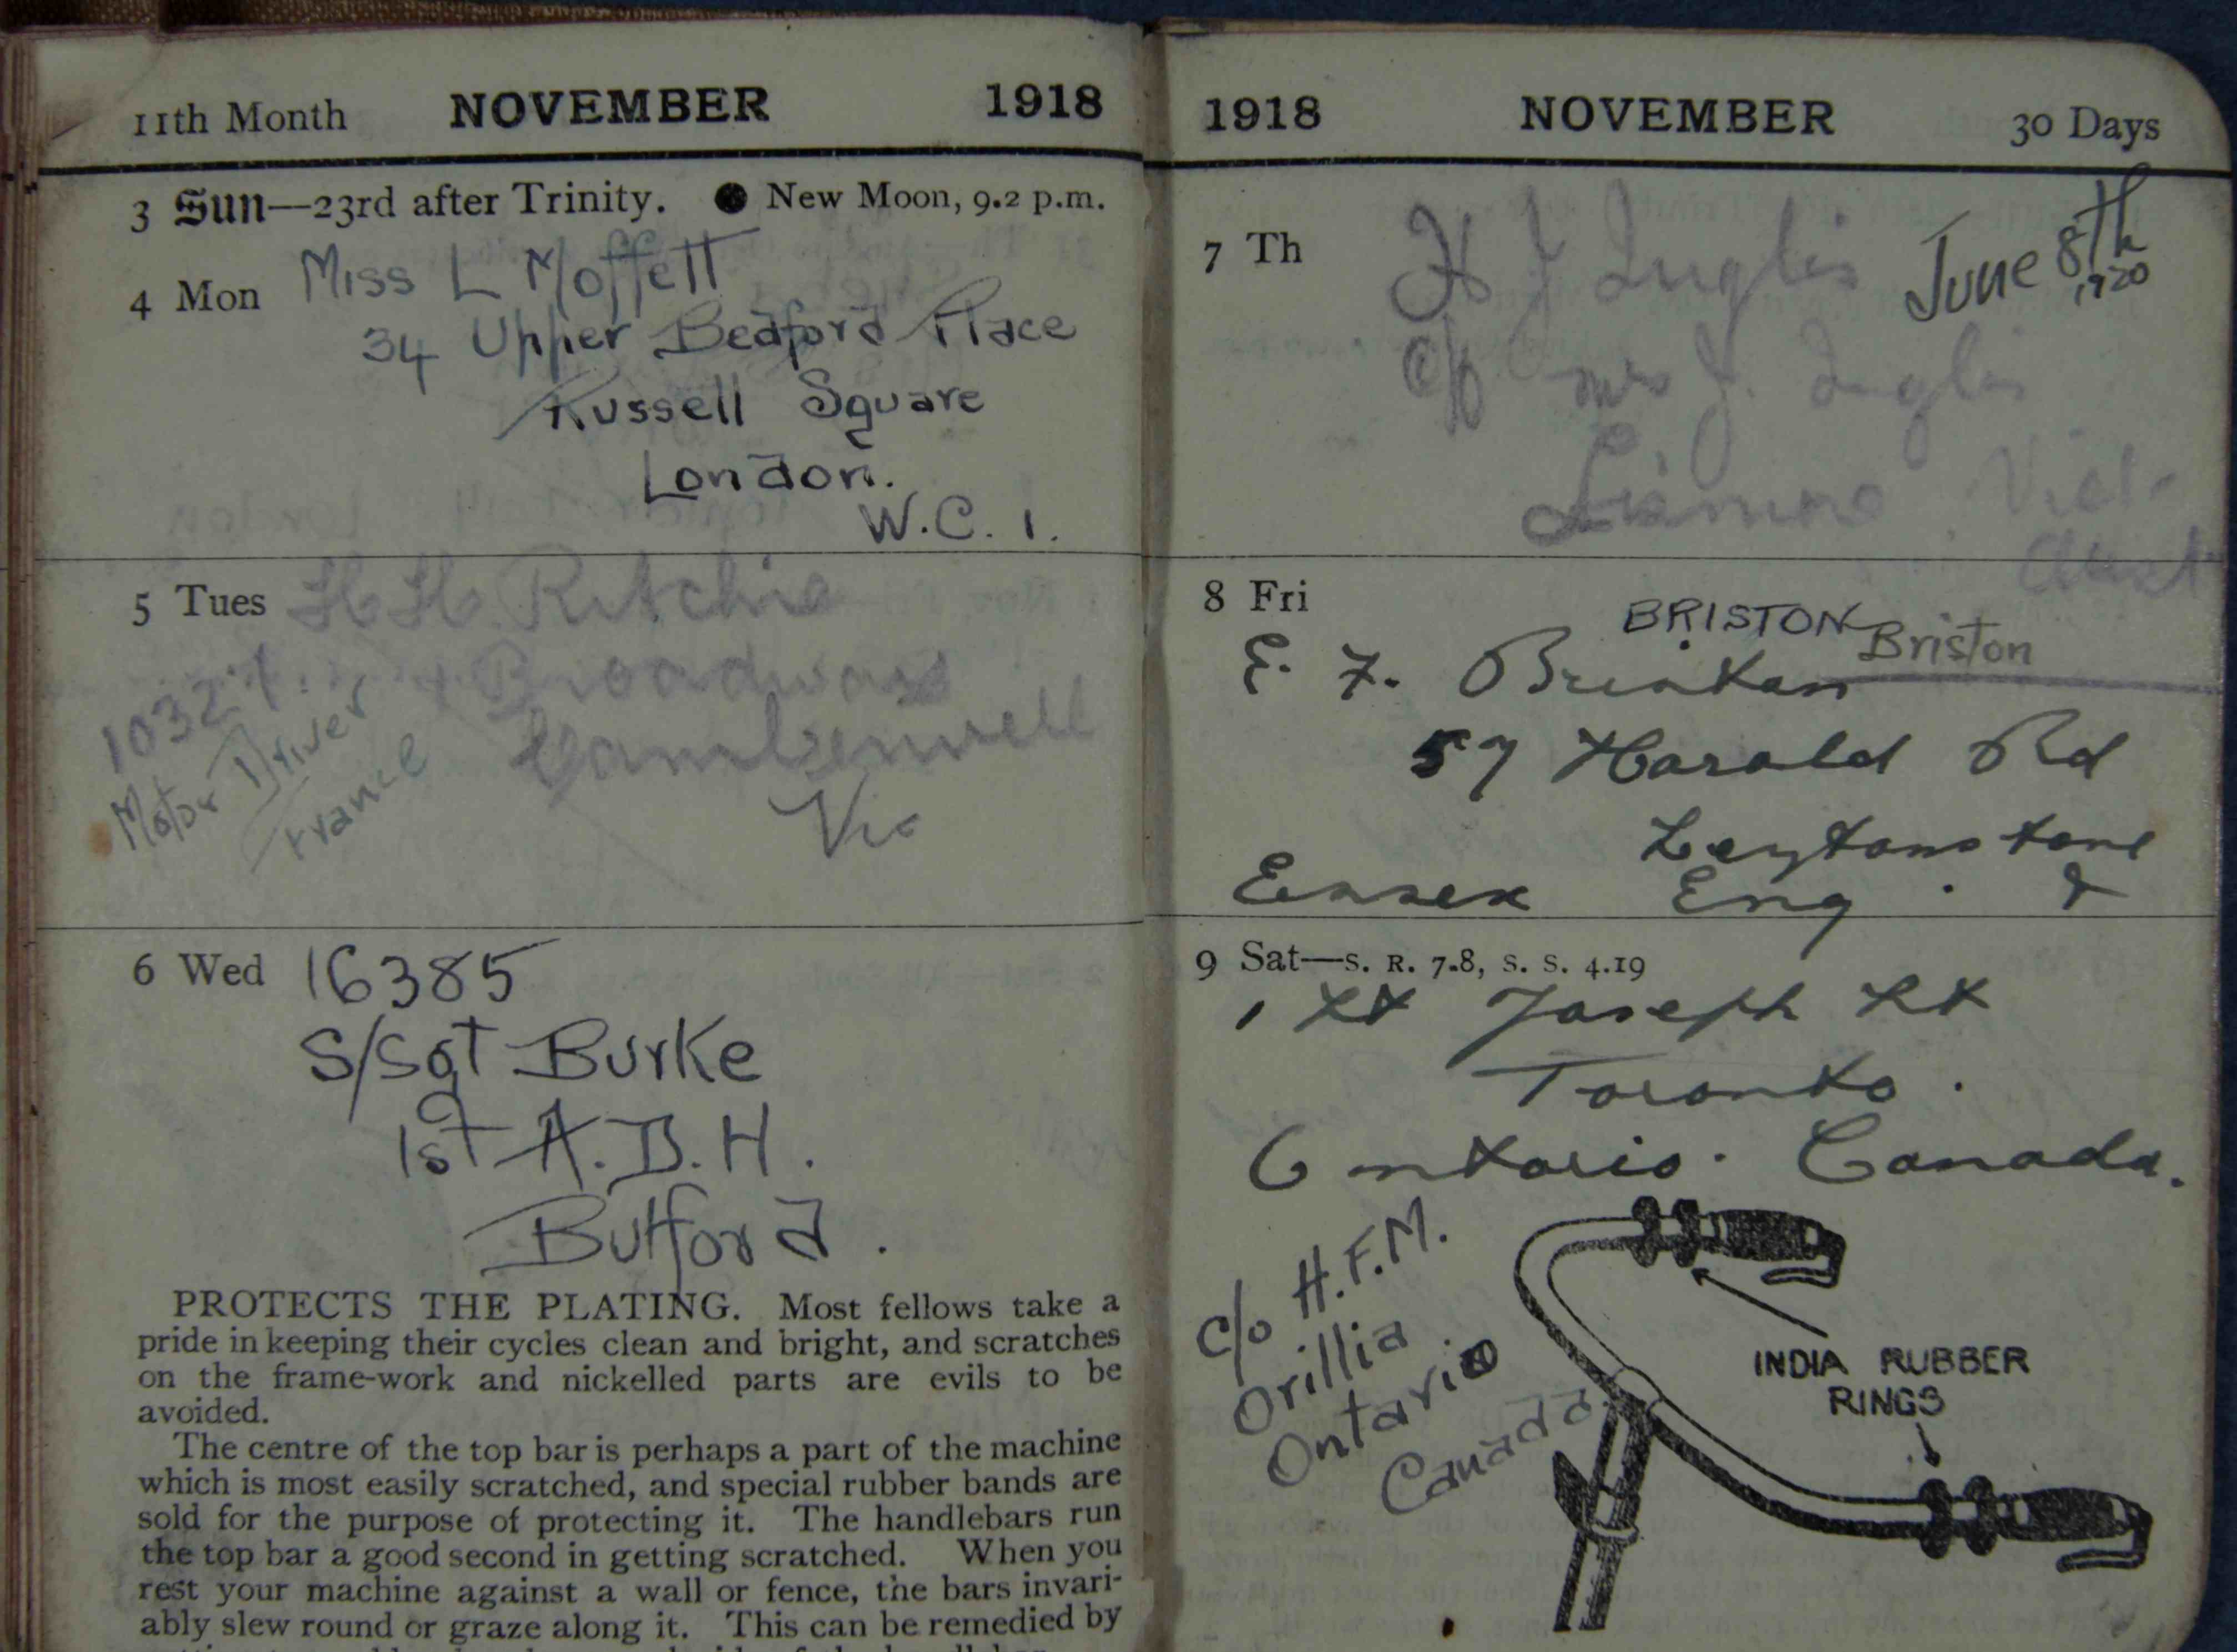 11th Month NOVEMBER 1918
3 Sun—23rd after Trinity. ● New Moon, 9.2 p.m.
4 Mon Miss L Moffett
34 Upper Bedford Place
Russell Square
London.
W.C. 1.
5 Tues H H Ritchie
Broadway
Camberwell
Vic
10327
Motor Driver
France
6 Wed 16385
S/Sgt Burke
1st A.D.H.
Bulford.
PROTECTS THE PLATING. Most fellows take a
pride in keeping their cycles clean and bright, and scratches
on the frame-work and nickelled parts are evils to be
avoided.
The centre of the top bar is perhaps a part of the machine
which is most easily scratched, and special rubber bands are
sold for the purpose of protecting it. The handlebars run
the top bar a good second in getting scratched. When you
rest your machine against a wall or fence, the bars invari-
ably slew round or graze along it. This can be remedied by
1918 NOVEMBER 30 Days
7 Th H J Inglis June 8th
1920
c/o Mrs J. Inglis
Lismore Vict.
Aust
8 Fri BRISTON
E. F. Briston Briston
57 Harold Rd
Leytonstone
Essex Eng. &
9 Sat—S. R. 7.8, S. S. 4.19
1 St Joseph St
Toronto.
Ontario. Canada.
c/o H.F.M.
Orillia
Ontario
Canada
INDIA RUBBER
RINGS